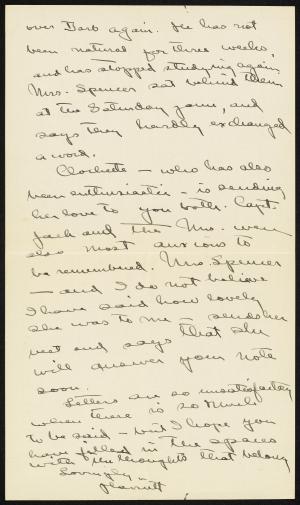 over Barb again. He has not
been natural for three weeks,
and has stopped studying again.
Mrs. Spencer sat behind them
at the Saturday game, and
says they hardly exchanged
a word.
Clochette - who has also
been enthusiastic - is sending
her love to you both. Capt.
Jack and the Mrs. were
also most anxious to
be remembered. Mrs. Spencer
- and I do not believe
I have said how lovely
she was to me - sends her
best and says that she
will answer your note
soon.
Letters are so unsatisfactory
when there is so much
to be said - but I hope you
have filled in the spaces
with the thoughts that belong
Lovingly -